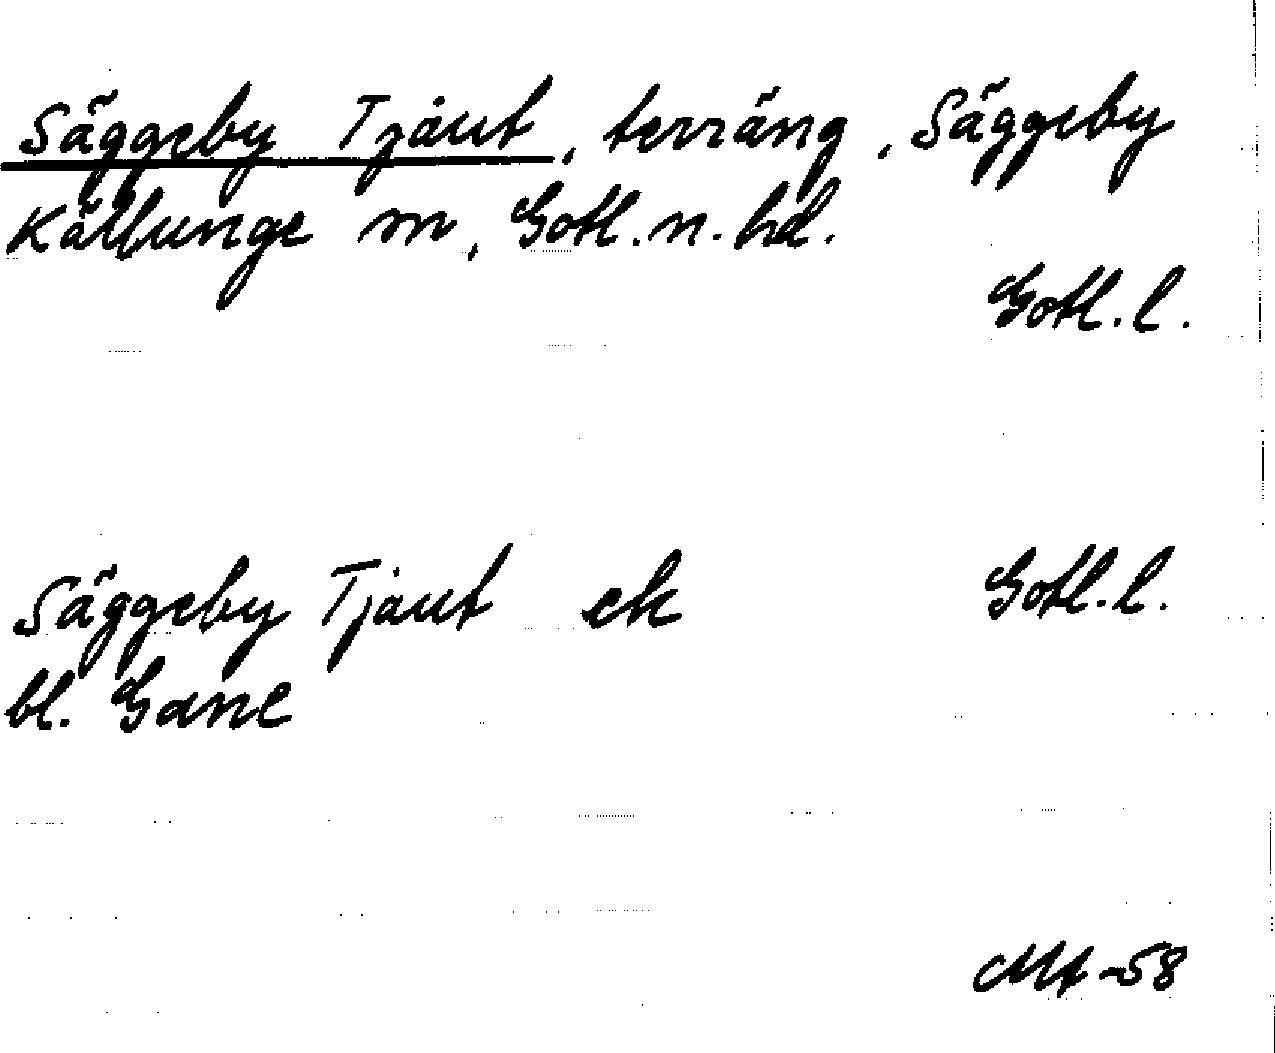 Säggeby Tjaut, terräng, Säggeby
Källunge sn, Gotl. n. hd.
Gotl. l.
Säggeby Tjaut ek Gotl. l.
bl. Gane
-58